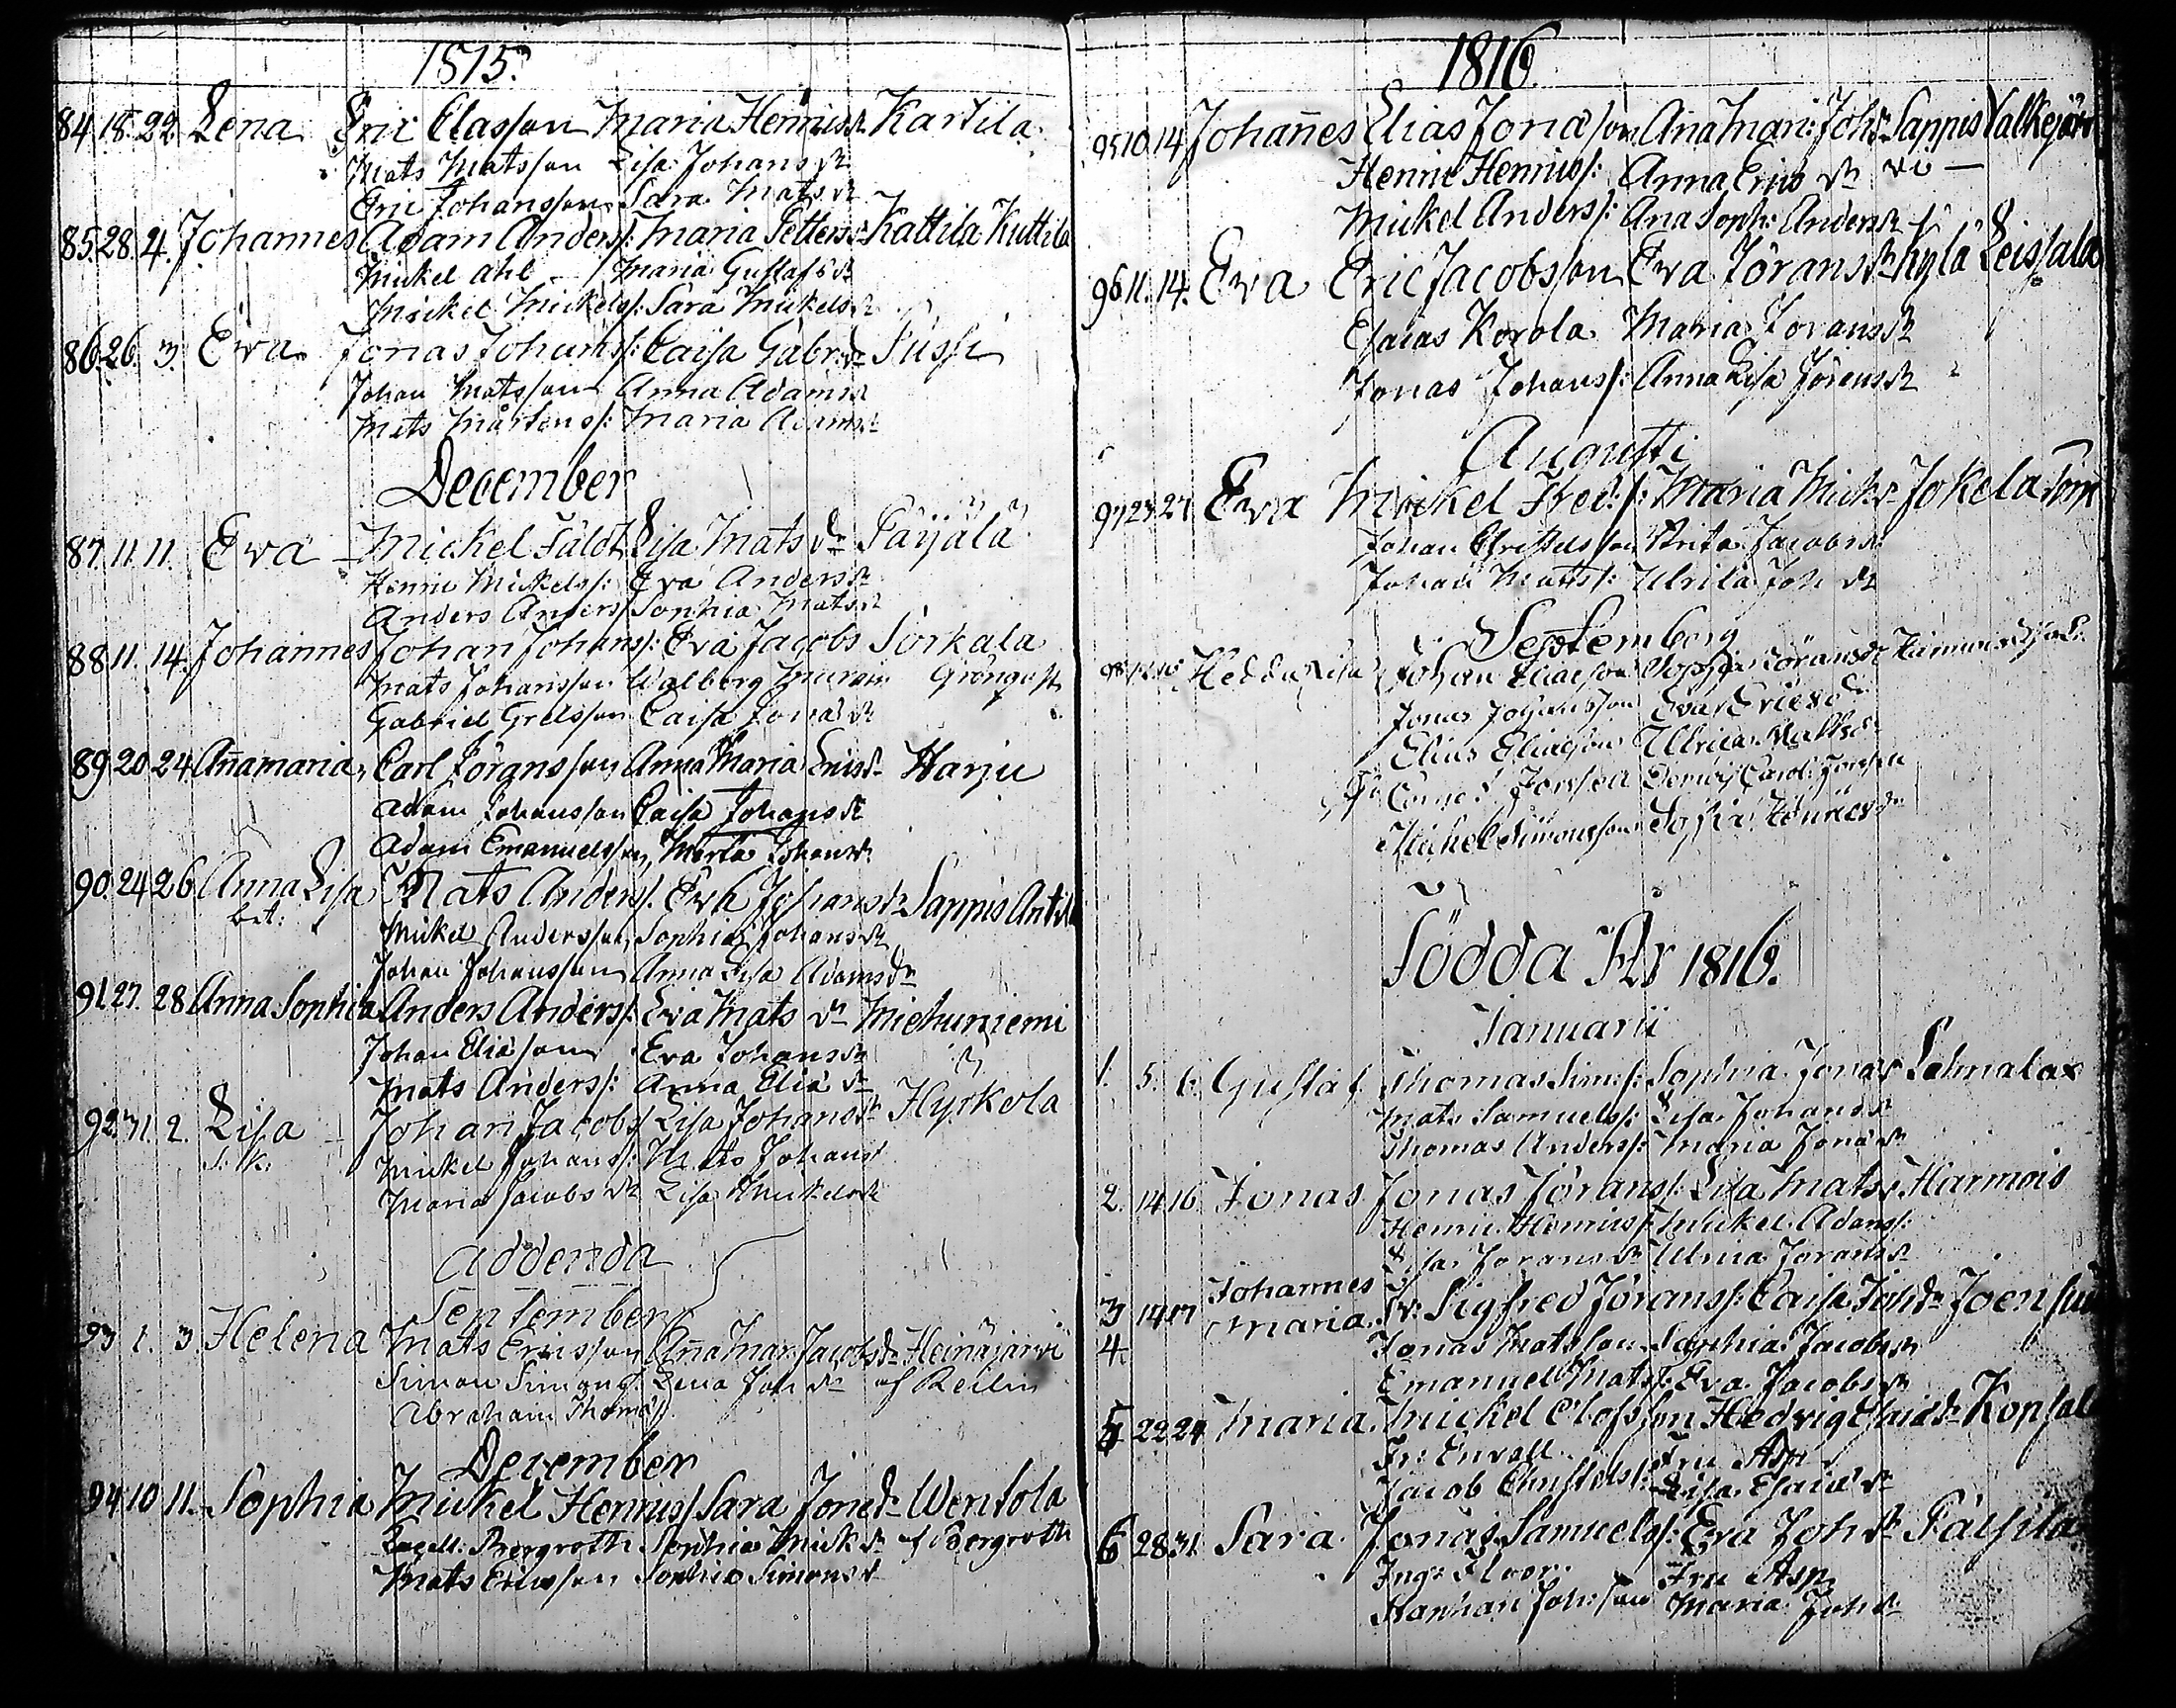 1815.
84. 18. 22. Lena Eric Elasson Maria Henricsdr Kartila
Mats Matsson Lisa Johansdr
Eric Johansson Sara Matsdr
85. 28. 4. Johannes Adam Anderss: Maria Pettersdr Kattila Kuttila
Mickel Ahl Maria Gustafsdr
Mickel Mickelss: Sara Mickelsdr
86. 26. 3. Eva Jonas Johanss: Caisa Gabr:dr Pussi
Johan Matsson Anna Adamsdr
Mats Mårtenss: Maria Adamsdr
December
87. 11. 11. Eva Mickel Fäldt Lisa Matsdr Päijälä
Henric Mickelss: Eva Andersdr
Anders Anderss: Sophia Matsdr
88. 11. 14. Johannes Johan Johanss: Eva Jacobs Sorkala
Mats Johansson Walborg Grönqvist
Gabriel Grelsson Caisa Jonædr
89. 20. 24. Annamaria Carl Jöransson Anna Maria Ericsdr Harju
Adam Johansson Caisa Johansdr
Adam Emanuelsson Maria Johansdr
90. 24. 26. Anna Lisa Mats Anderss: Eva Johansdr Sappis Antila
bet: Mickel Andersson Sophia Johansdr
Johan Johansson Anna Lisa Adamsdr
91. 27. 28. Anna Sophia Anders Anderss: Eva Matsdr Miehuniemi
Johan Eliasson Eva Johansdr
Mats Anderss: Anna Eliædr
92. 31. 2. Lisa Johan Jacobss: Lisa Johansdr Hyrkola
Mickel Johanss: Mats Johanss
Maria Jacobsdr Lisa Mickelsdr
Addenda
September
93. 1. 3. Helena Mats Ericsson Anna Mar: Jacobsdr Heinäjärvi
Simon Simonss: Lena Joh:dr af Reilin
Abraham Thomæss:
December
94. 10. 11. Sophia Mickel Henricss: Sara Jonædr Wentola
Bergroth Sophia Mick:dr af Bergroth
Mats Ericsson Sophia Simonsdr
1816.
95. 10. 14. Johannes Elias Jonasson Anna Mari: Joh:dr Sappis Valkejärvi
Henric Henricss: Anna Ericsdr
Mickel Anderss: Ana Soph: Andersdr
96. 11. 14. Eva Eric Jacobsson Eva Jöransdr Kylä Leissala
Esaias Korola Maria Jöransdr
Jonas Johanss: Anna Lisa Jöransdr
Augusti
97. 23. 27. Eva Mickel Fred:s: Maria Mick:dr Jokela
Johan Christelsson Brita Jacobsdr
Johan Matts: Ulrika Joh:dr
September
Hedda Lisa Johan Eliasson Sophia Göransdr
Jonas Johansson Eva Ericsdr
Elias Eliasson Ulrica Mattsdr
Michel Simonsson Sofia Henricsdr
Födda År 1816.
Januarii
1. 5. 6. Gustaf Thomas Sim:s: Sophia Jonædr Lahnalax
Mats Samuelss: Lisa Johansdr
Thomas Anderss: Maria Jonædr
2. 14. 16. Jonas Jonas Jöranss: Lisa Matsdr Harmois
Henric Henricss: Mickel Adamss:
Lisa Jöransdr Ulrica Jöransdr
Johannes
3 14. 17 Maria Sigfred Jöranss: Caisa Joh:dr Joensuu
4 Jonas Matsson Sophia Jacobsdr
Emanuel Matss: Eva Jacobsdr
5 22. 24 Maria Mickel Olofsson Hedvig Esaiædr Kopsal
Fr: Envall Fru Asp
Jacob Christelss: Lisa Esaiædr
6 28. 31. Sara Jonas Samuelss: Eva Joh:dr Päijilä
Ing: Floor: Fru Asp
Staphan Joh:sson Maria Joh:dr